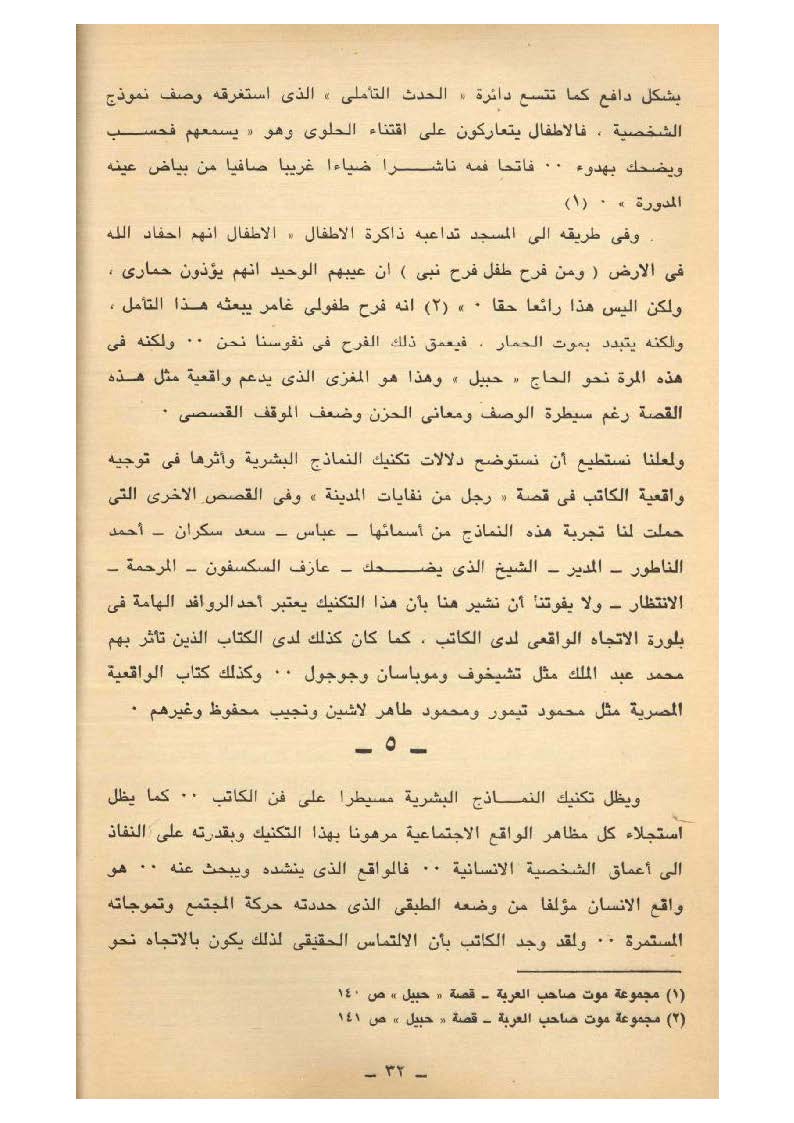 بشكل دافع كما تتسع دائرة « الحدث التأملى » الذى استغرقه وصف نموذج
الشخصية ، فالاطفال يتعاركون على اقتناء الحلوى وهو « يسمعهم فحسب
ويضحك بهدوء ٠٠ فاتحا فمه ناشرا ضياءا غريبا صافيا من بياض عينه
المدورة » ٠ (١)
وفى طريقه الى المسجد تداعبه ذاكرة الاطفال « الاطفال انهم احفاد الله
فى الارض ( ومن فرح طفل فرح نبى ) ان عيبهم الوحيد انهم يؤذون حمارى ،
ولكن اليس هذا رائعا حقا ٠ » (٢) انه فرح طفولى غامر يبعثه هذا التأمل ،
ولكنه يتبدد بموت الحمار . فيعمق ذلك الفرح فى نفوسنا نحن ٠٠ ولكنه فى
هذه المرة نحو الحاج « حبيل » وهذا هو المغزى الذى يدعم واقعية مثل هذه
القصة رغم سيطرة الوصف ومعانى الحزن وضعف الموقف القصصى ٠
ولعلنا نستطيع أن نستوضح دلالات تكنيك النماذج البشرية وأثرها فى توجيه
واقعية الكاتب فى قصة « رجل من نفايات المدينة » وفى القصص الاخرى التى
حملت لنا تجربة هذه النماذج من أسمائها – عباس – سعد سكران – أحمد
الناطور – المدير – الشيخ الذى يضحك – عازف السكسفون – المرحمة –
الانتظار – ولا يفوتنا أن نشير هنا بأن هذا التكنيك يعتبر أحد الروافد الهامة فى
بلورة الاتجاه الواقعى لدى الكاتب ، كما كان كذلك لدى الكتاب الذين تأثر بهم
محمد عبد الملك مثل تشيخوف وموباسان وجوجول ٠٠ وكذلك كتاب الواقعية
المصرية مثل محمود تيمور ومحمود طاهر لاشين ونجيب محفوظ وغيرهم ٠
– ٥ –
ويظل تكنيك النماذج البشرية مسيطرا على فن الكاتب ٠٠ كما يظل
استجلاء كل مظاهر الواقع الاجتماعية مرهونا بهذا التكنيك وبقدرته على النفاذ
الى أعماق الشخصية الانسانية ٠٠ فالواقع الذى ينشده ويبحث عنه ٠٠ هو
واقع الانسان مؤلفا من وضعه الطبقى الذى حددته حركة المجتمع وتموجاته
المستمرة ٠٠ ولقد وجد الكاتب بأن الالتماس الحقيقى لذلك يكون بالاتجاه نحو
(١) مجموعة موت صاحب العربة – قصة « حبيل » ص ١٤٠
(٢) مجموعة موت صاحب العربة – قصة « حبيل » ص ١٤١
– ٣٢ –